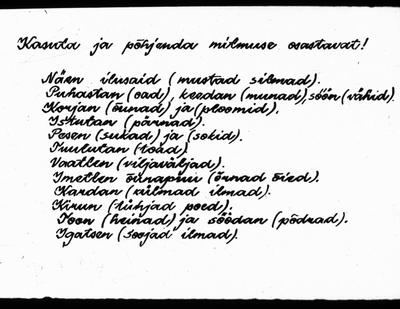 Kasuta ja põhjenda mitmuse osastavat!
Näen ilusaid (mustad silmad).
Puhastan (oad), keedan (munad), söön (vähid).
Korjan (õunad) ja (ploomid).
Istutan (pärnad).
Pesen (sukad) ja (sokid).
Tuulutan (toad).
Vaatlen (viljaväljad).
Imetlen õunapuu (õrnad õied).
Kardan (külmad ilmad).
Kirun (tühjad poed).
Toon (heinad) ja söödan (põdrad).
Igatsen (soojad ilmad).